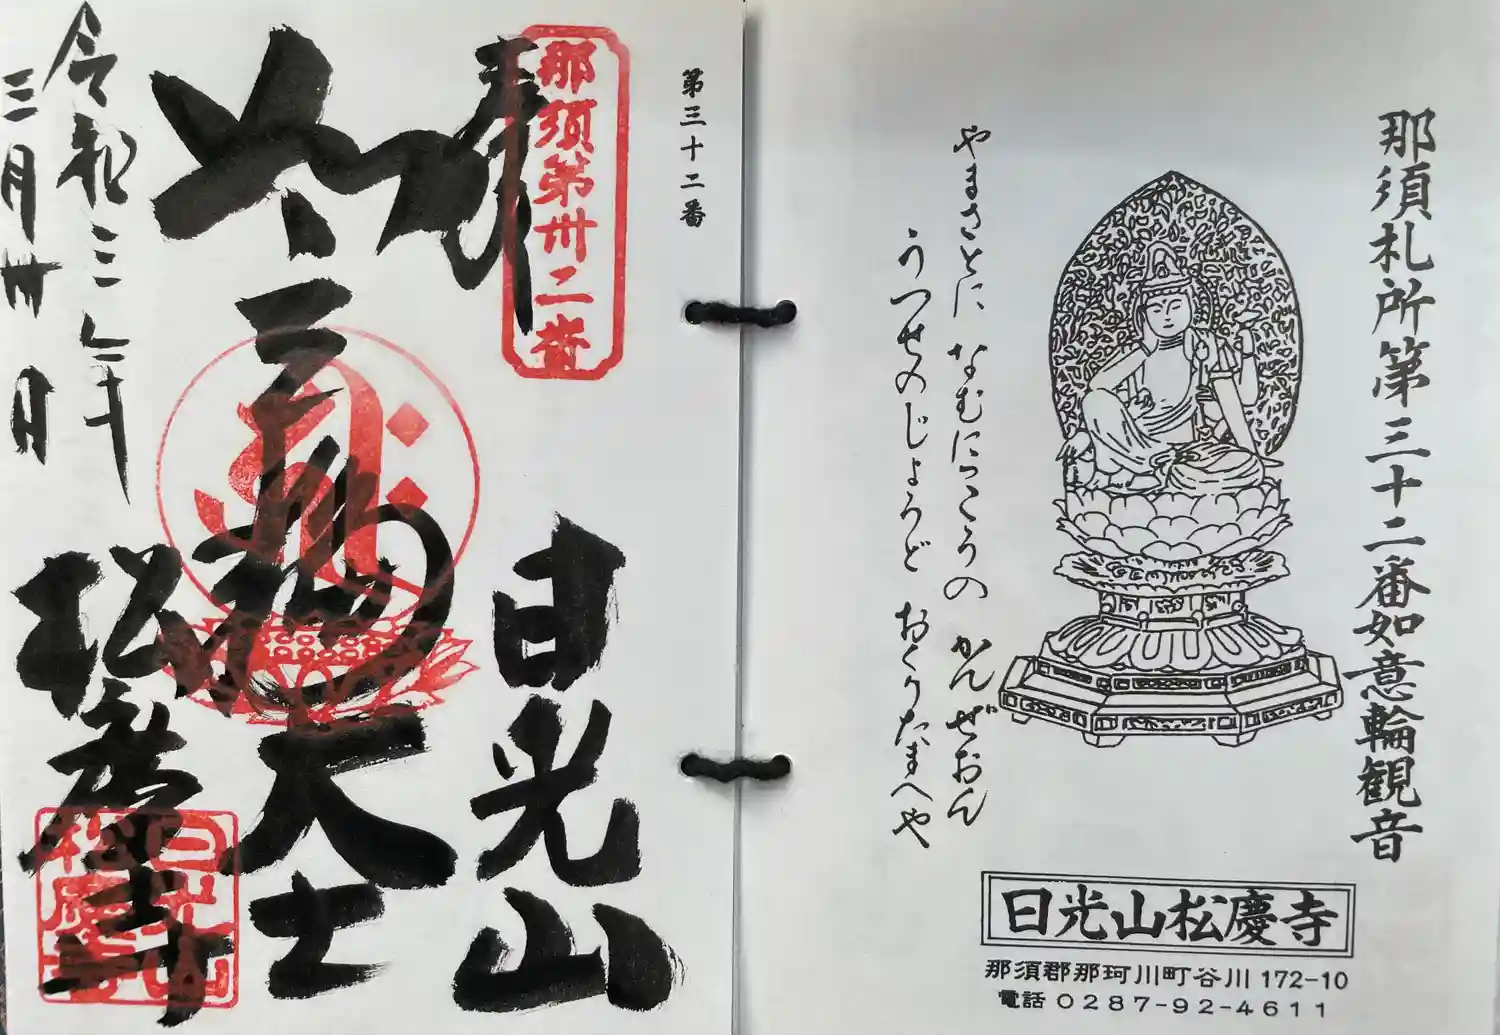 那須札所第三十二番如意輪観音
やまさとに なむにっこうの かんぜおん
うつせのじょうど おくりたまへや
日光山松慶寺
那須郡那珂川町谷川 172-10
電話 0287-92-4611
第三十二番
那須第卅二番
奉拝
日光山
大士
松慶寺
日光山
松慶寺
令和三年
三月卅日